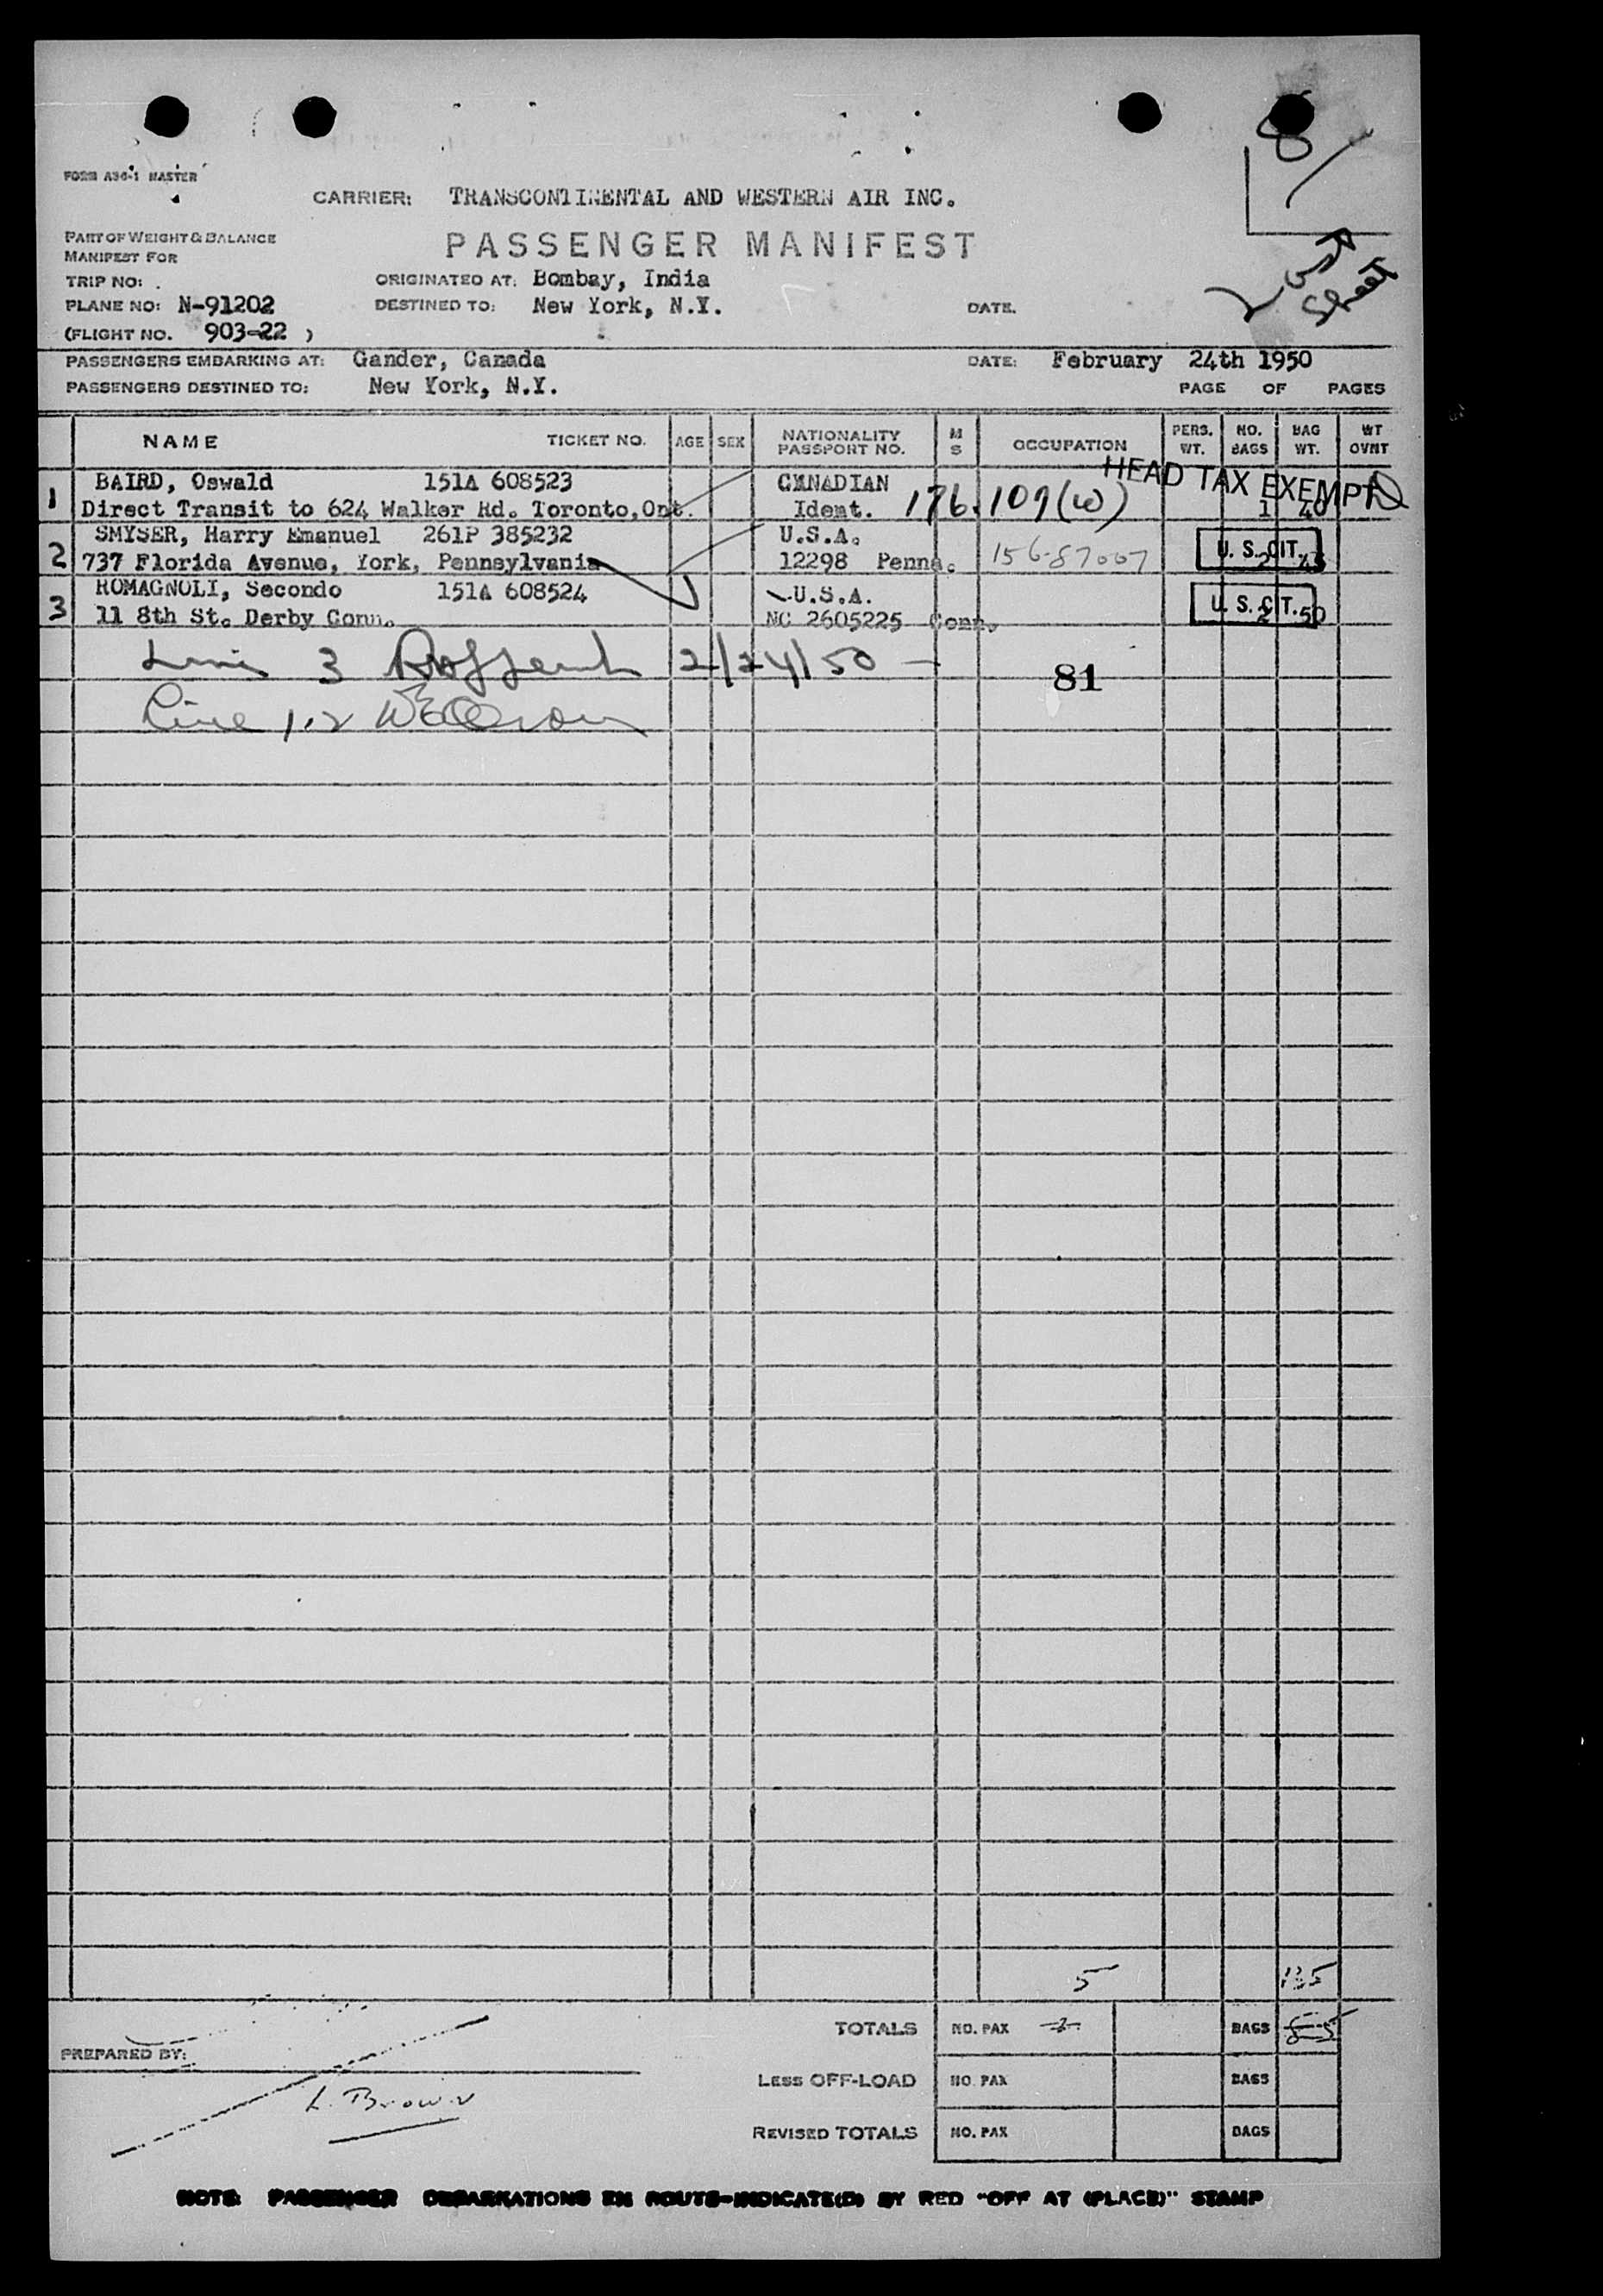 FORM A36-1 MASTER
CARRIER: TRANSCONTINENTAL AND WESTERN AIR INC.
PART OF WEIGHT & BALANCE
MANIFEST FOR
PASSENGER MANIFEST
TRIP NO:
ORIGINATED AT: Bombay, India
PLANE NO: N-91202
DESTINED TO: New York, N.Y.
DATE.
(FLIGHT NO. 903-22 )
8
Last
Sheet
PASSENGERS EMBARKING AT: Gander, Canada
DATE: February 24th 1950
PASSENGERS DESTINED TO: New York, N.Y.
PAGE OF PAGES
NAME TICKET NO. AGE SEX NATIONALITY PASSPORT NO. M S OCCUPATION PERS. WT. NO. BAGS BAG WT. WT OVNT
HEAD TAX EXEMPT
1 BAIRD, Oswald 151A 608523 CANADIAN
Direct Transit to 624 Walker Rd. Toronto,Ont. Ident. 176.109(w) 1 40
2 SMYSER, Harry Emanuel 261P 385232 U.S.A. U. S. CIT.
737 Florida Avenue, York, Pennsylvania 12298 Penna. 156-87007 2 45
3 ROMAGNOLI, Secondo 151A 608524 U.S.A. U. S. CIT.
11 8th St. Derby Conn. NC 2605225 Conn. 2 50
Line 3 2/24/50
81
Line 1-2
5 135
TOTALS NO. PAX 3 BAGS
PREPARED BY:
LESS OFF-LOAD NO. PAX BAGS
L. Brown
REVISED TOTALS NO. PAX BAGS
NOTE: PASSENGER DEBARKATIONS EN ROUTE-INDICATE(D) BY RED "OFF AT (PLACE)" STAMP